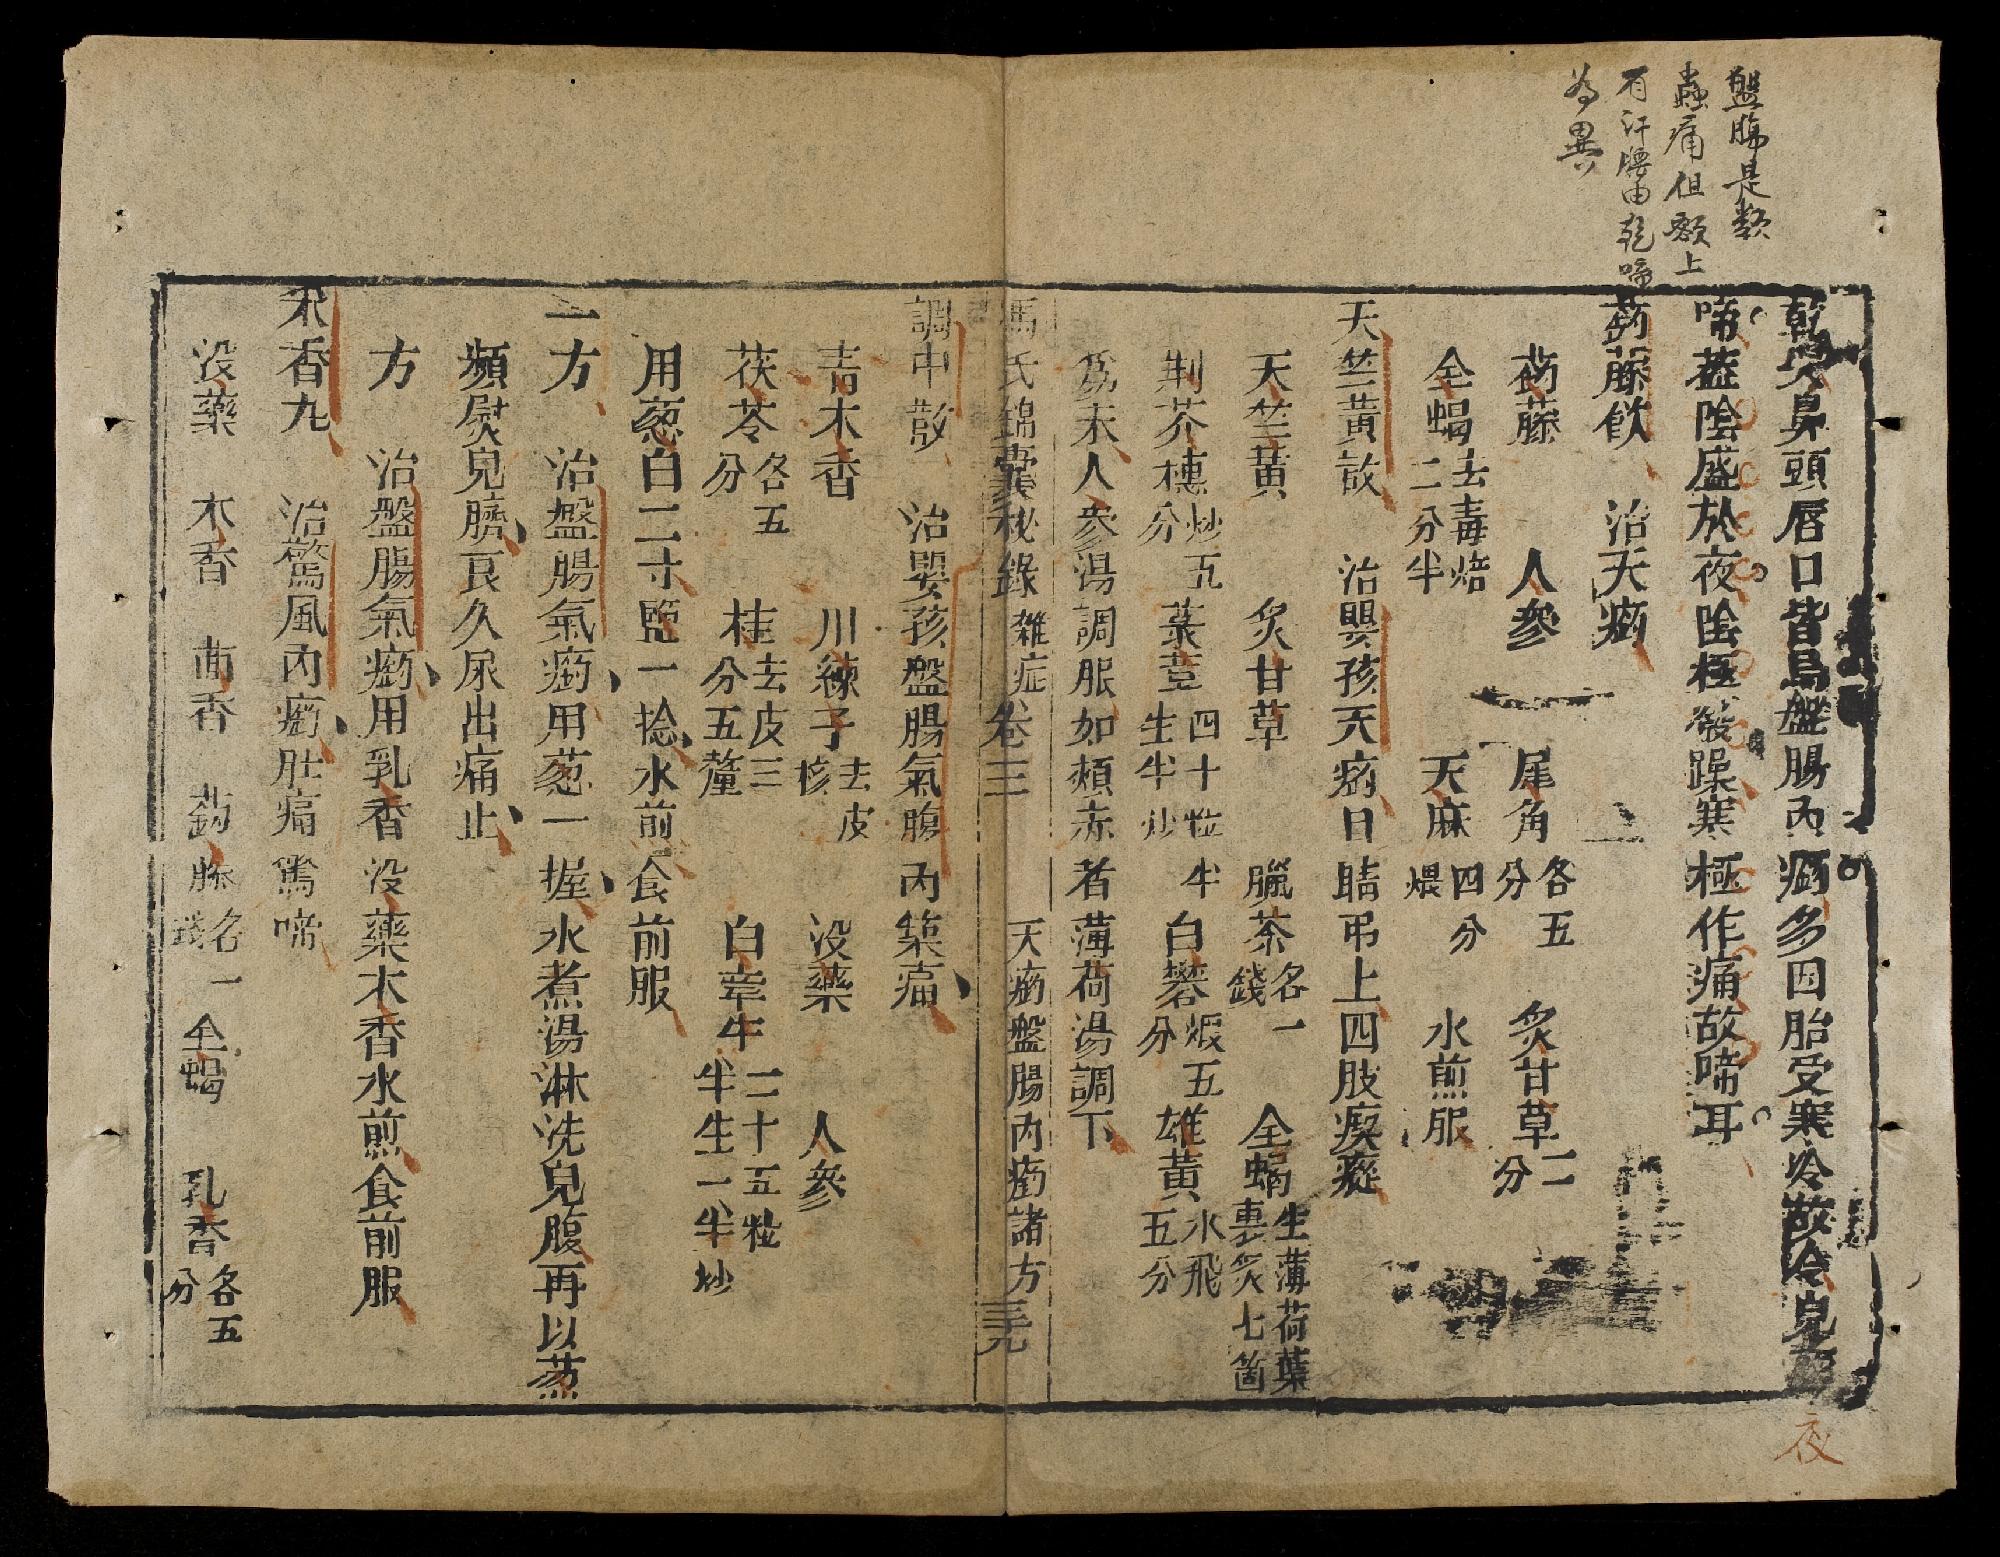 盤腸是類
蟲痛但額上
有汗腰曲乾啼
為異
乾哭鼻頭唇口皆烏盤腸內痛多因胎受寒冷故冷兒
啼葢陰盛於夜陰極發躁寒極作痛故啼耳
鈎藤飲 治天痛
鈎藤 人參 犀角各五分 炙甘草二分
全蝎去毒焙二分半 天麻四分煨 水煎服
天竺黃散 治嬰孩天痛目睛弔上四肢瘈瘲
天竺黃 炙甘草 臘茶各一錢 全蝎生薄荷葉裹炙七箇
荆芥穗炒五分 菉荳四十粒半生半炒 白礬煆五分 雄黃水飛五分
為末人參湯調服如頰赤者薄荷湯調下
馮氏錦囊秘錄 雜症卷三 天痛盤腸內痛諸方 三九
調中散 治嬰孩盤腸氣腹內築痛
青木香 川練子去皮核 没藥 人參
茯苓各五分 桂去皮三分五釐 白牽牛二十五粒半生一半炒
用葱白二寸盬一捻水煎食前服
一方 治盤腸氣痛用葱一握水煮湯淋洗兒腹再以葱
頻熨兒臍良久尿出痛止
方 治盤腸氣痛用乳香没藥木香水煎食前服
木香丸 治驚風內痛肚痛驚啼
没藥 木香 茴香 鈎藤各一錢 全蝎 乳香各五分
夜